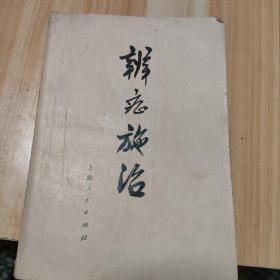 辨症施治
上海人民出版社